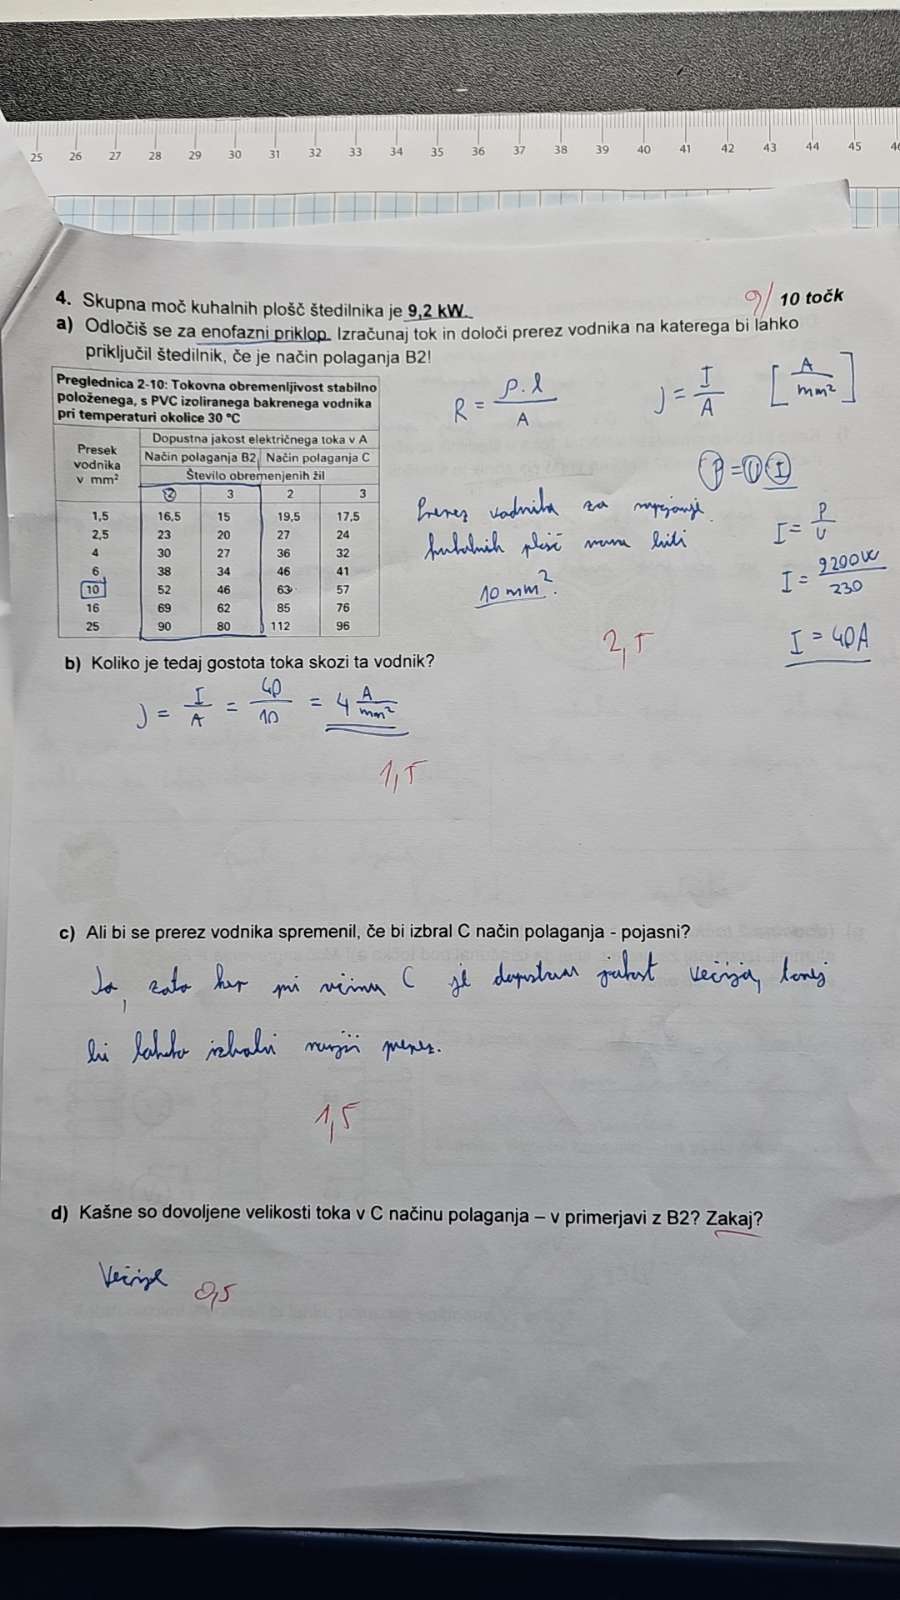 25 26 27 28 29 30 31 32 33 34 35 36 37 38 39 40 41 42 43 44 45 46
4. Skupna moč kuhalnih plošč štedilnika je 9,2 kW.
9/ 10 točk
a) Odločiš se za enofazni priklop. Izračunaj tok in določi prerez vodnika na katerega bi lahko
priključil štedilnik, če je način polaganja B2!
Preglednica 2-10: Tokovna obremenljivost stabilno
položenega, s PVC izoliranega bakrenega vodnika
pri temperaturi okolice 30 °C
Presek vodnika v mm²
Dopustna jakost električnega toka v A
Način polaganja B2 Način polaganja C
Število obremenjenih žil
2 3 2 3
1,5 16,5 15 19,5 17,5
2,5 23 20 27 24
4 30 27 36 32
6 38 34 46 41
10 52 46 63 57
16 69 62 85 76
25 90 80 112 96
R = ρ.l / A
J = I / A [A / mm²]
P = U I
I = P / U
I = 9200W / 230
I = 40A
Prerez vodnika za napajanje
kuhalnih plošč mora biti
10 mm².
2,5
b) Koliko je tedaj gostota toka skozi ta vodnik?
J = I / A = 40 / 10 = 4 A / mm²
1,5
c) Ali bi se prerez vodnika spremenil, če bi izbral C način polaganja - pojasni?
Ja, zato ker pri načinu C je dopustna jakost večja, torej
bi lahko izbrali manjši prerez.
1,5
d) Kašne so dovoljene velikosti toka v C načinu polaganja – v primerjavi z B2? Zakaj?
Večje
0,5